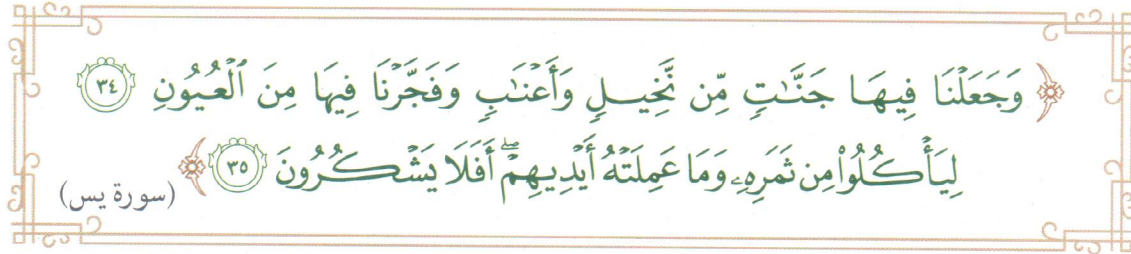 ﴿ وَجَعَلْنَا فِيهَا جَنَّٰتٖ مِّن نَّخِيلٖ وَأَعْنَٰبٖ وَفَجَّرْنَا فِيهَا مِنَ ٱلْعُيُونِ ٣٤
لِيَأْكُلُوا۟ مِن ثَمَرِهِۦ وَمَا عَمِلَتْهُ أَيْدِيهِمْۖ أَفَلَا يَشْكُرُونَ ٣٥ ﴾ (سورة يس)